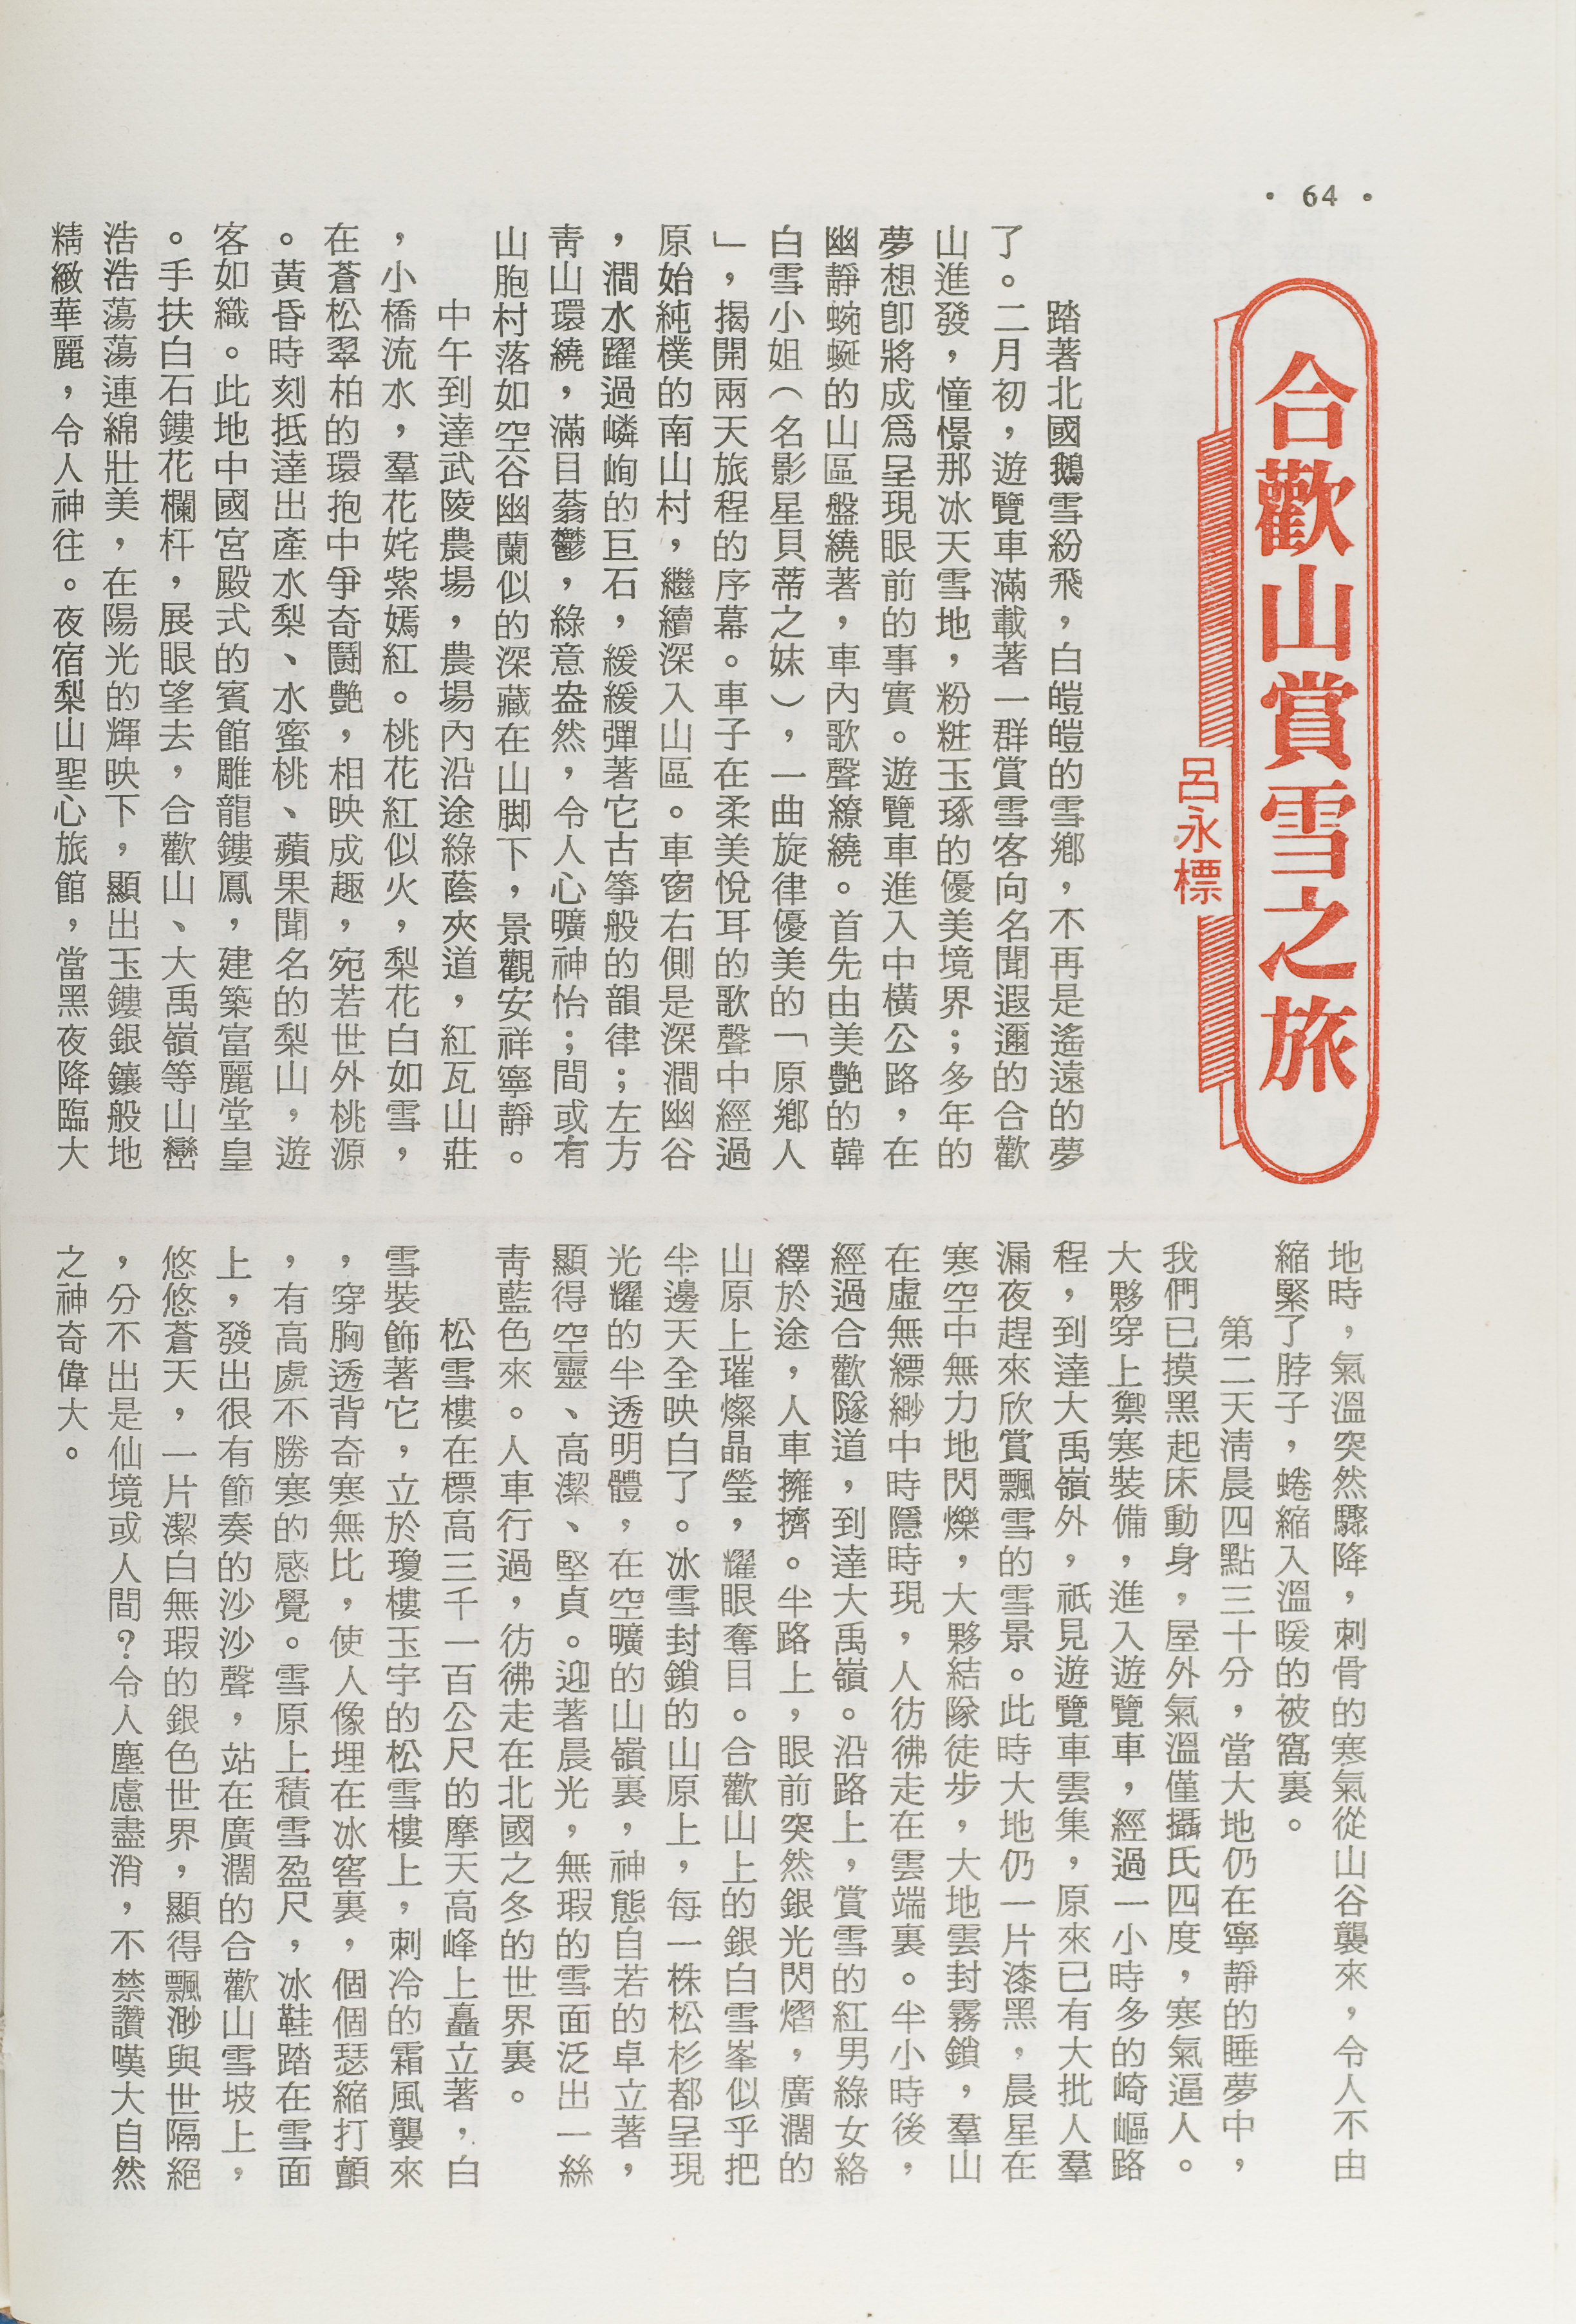 • 64 •
合歡山賞雪之旅
呂永標
踏著北國鵝雪紛飛，白皚皚的雪鄉，不再是遙遠的夢
了。二月初，遊覽車滿載著一群賞雪客向名聞遐邇的合歡
山進發，憧憬那冰天雪地，粉粧玉琢的優美境界；多年的
夢想卽將成爲呈現眼前的事實。遊覽車進入中橫公路，在
幽靜蜿蜒的山區盤繞著，車內歌聲繚繞。首先由美艷的韓
白雪小姐（名影星貝蒂之妹），一曲旋律優美的「原鄉人
」，揭開兩天旅程的序幕。車子在柔美悅耳的歌聲中經過
原始純樸的南山村，繼續深入山區。車窗右側是深澗幽谷
，澗水躍過嶙峋的巨石，緩緩彈著它古箏般的韻律；左方
靑山環繞，滿目蓊鬱，綠意盎然，令人心曠神怡；間或有
山胞村落如空谷幽蘭似的深藏在山脚下，景觀安祥寧靜。
中午到達武陵農場，農場內沿途綠蔭夾道，紅瓦山莊
，小橋流水，羣花姹紫嫣紅。桃花紅似火，梨花白如雪，
在蒼松翠柏的環抱中爭奇鬪艷，相映成趣，宛若世外桃源
。黃昏時刻抵達出產水梨、水蜜桃、蘋果聞名的梨山，遊
客如織。此地中國宮殿式的賓館雕龍鏤鳳，建築富麗堂皇
。手扶白石鏤花欄杆，展眼望去，合歡山、大禹嶺等山巒
浩浩蕩蕩連綿壯美，在陽光的輝映下，顯出玉鏤銀鑲般地
精緻華麗，令人神往。夜宿梨山聖心旅館，當黑夜降臨大
地時，氣溫突然驟降，刺骨的寒氣從山谷襲來，令人不由
縮緊了脖子，蜷縮入溫暖的被窩裏。
第二天淸晨四點三十分，當大地仍在寧靜的睡夢中，
我們已摸黑起床動身，屋外氣溫僅攝氏四度，寒氣逼人。
大夥穿上禦寒裝備，進入遊覽車，經過一小時多的崎嶇路
程，到達大禹嶺外，祇見遊覽車雲集，原來已有大批人羣
漏夜趕來欣賞飄雪的雪景。此時大地仍一片漆黑，晨星在
寒空中無力地閃爍，大夥結隊徒步，大地雲封霧鎖，羣山
在虛無縹緲中時隱時現，人彷彿走在雲端裏。半小時後，
經過合歡隧道，到達大禹嶺。沿路上，賞雪的紅男綠女絡
繹於途，人車擁擠。半路上，眼前突然銀光閃熠，廣濶的
山原上璀燦晶瑩，耀眼奪目。合歡山上的銀白雪峯似乎把
半邊天全映白了。冰雪封鎖的山原上，每一株松杉都呈現
光耀的半透明體，在空曠的山嶺裏，神態自若的卓立著，
顯得空靈、高潔、堅貞。迎著晨光，無瑕的雪面泛出一絲
靑藍色來。人車行過，彷彿走在北國之冬的世界裏。
松雪樓在標高三千一百公尺的摩天高峰上矗立著，白
雪裝飾著它，立於瓊樓玉宇的松雪樓上，刺冷的霜風襲來
，穿胸透背奇寒無比，使人像埋在冰窖裏，個個瑟縮打顫
，有高處不勝寒的感覺。雪原上積雪盈尺，冰鞋踏在雪面
上，發出很有節奏的沙沙聲，站在廣濶的合歡山雪坡上，
悠悠蒼天，一片潔白無瑕的銀色世界，顯得飄渺與世隔絕
，分不出是仙境或人間？令人塵慮盡消，不禁讚嘆大自然
之神奇偉大。